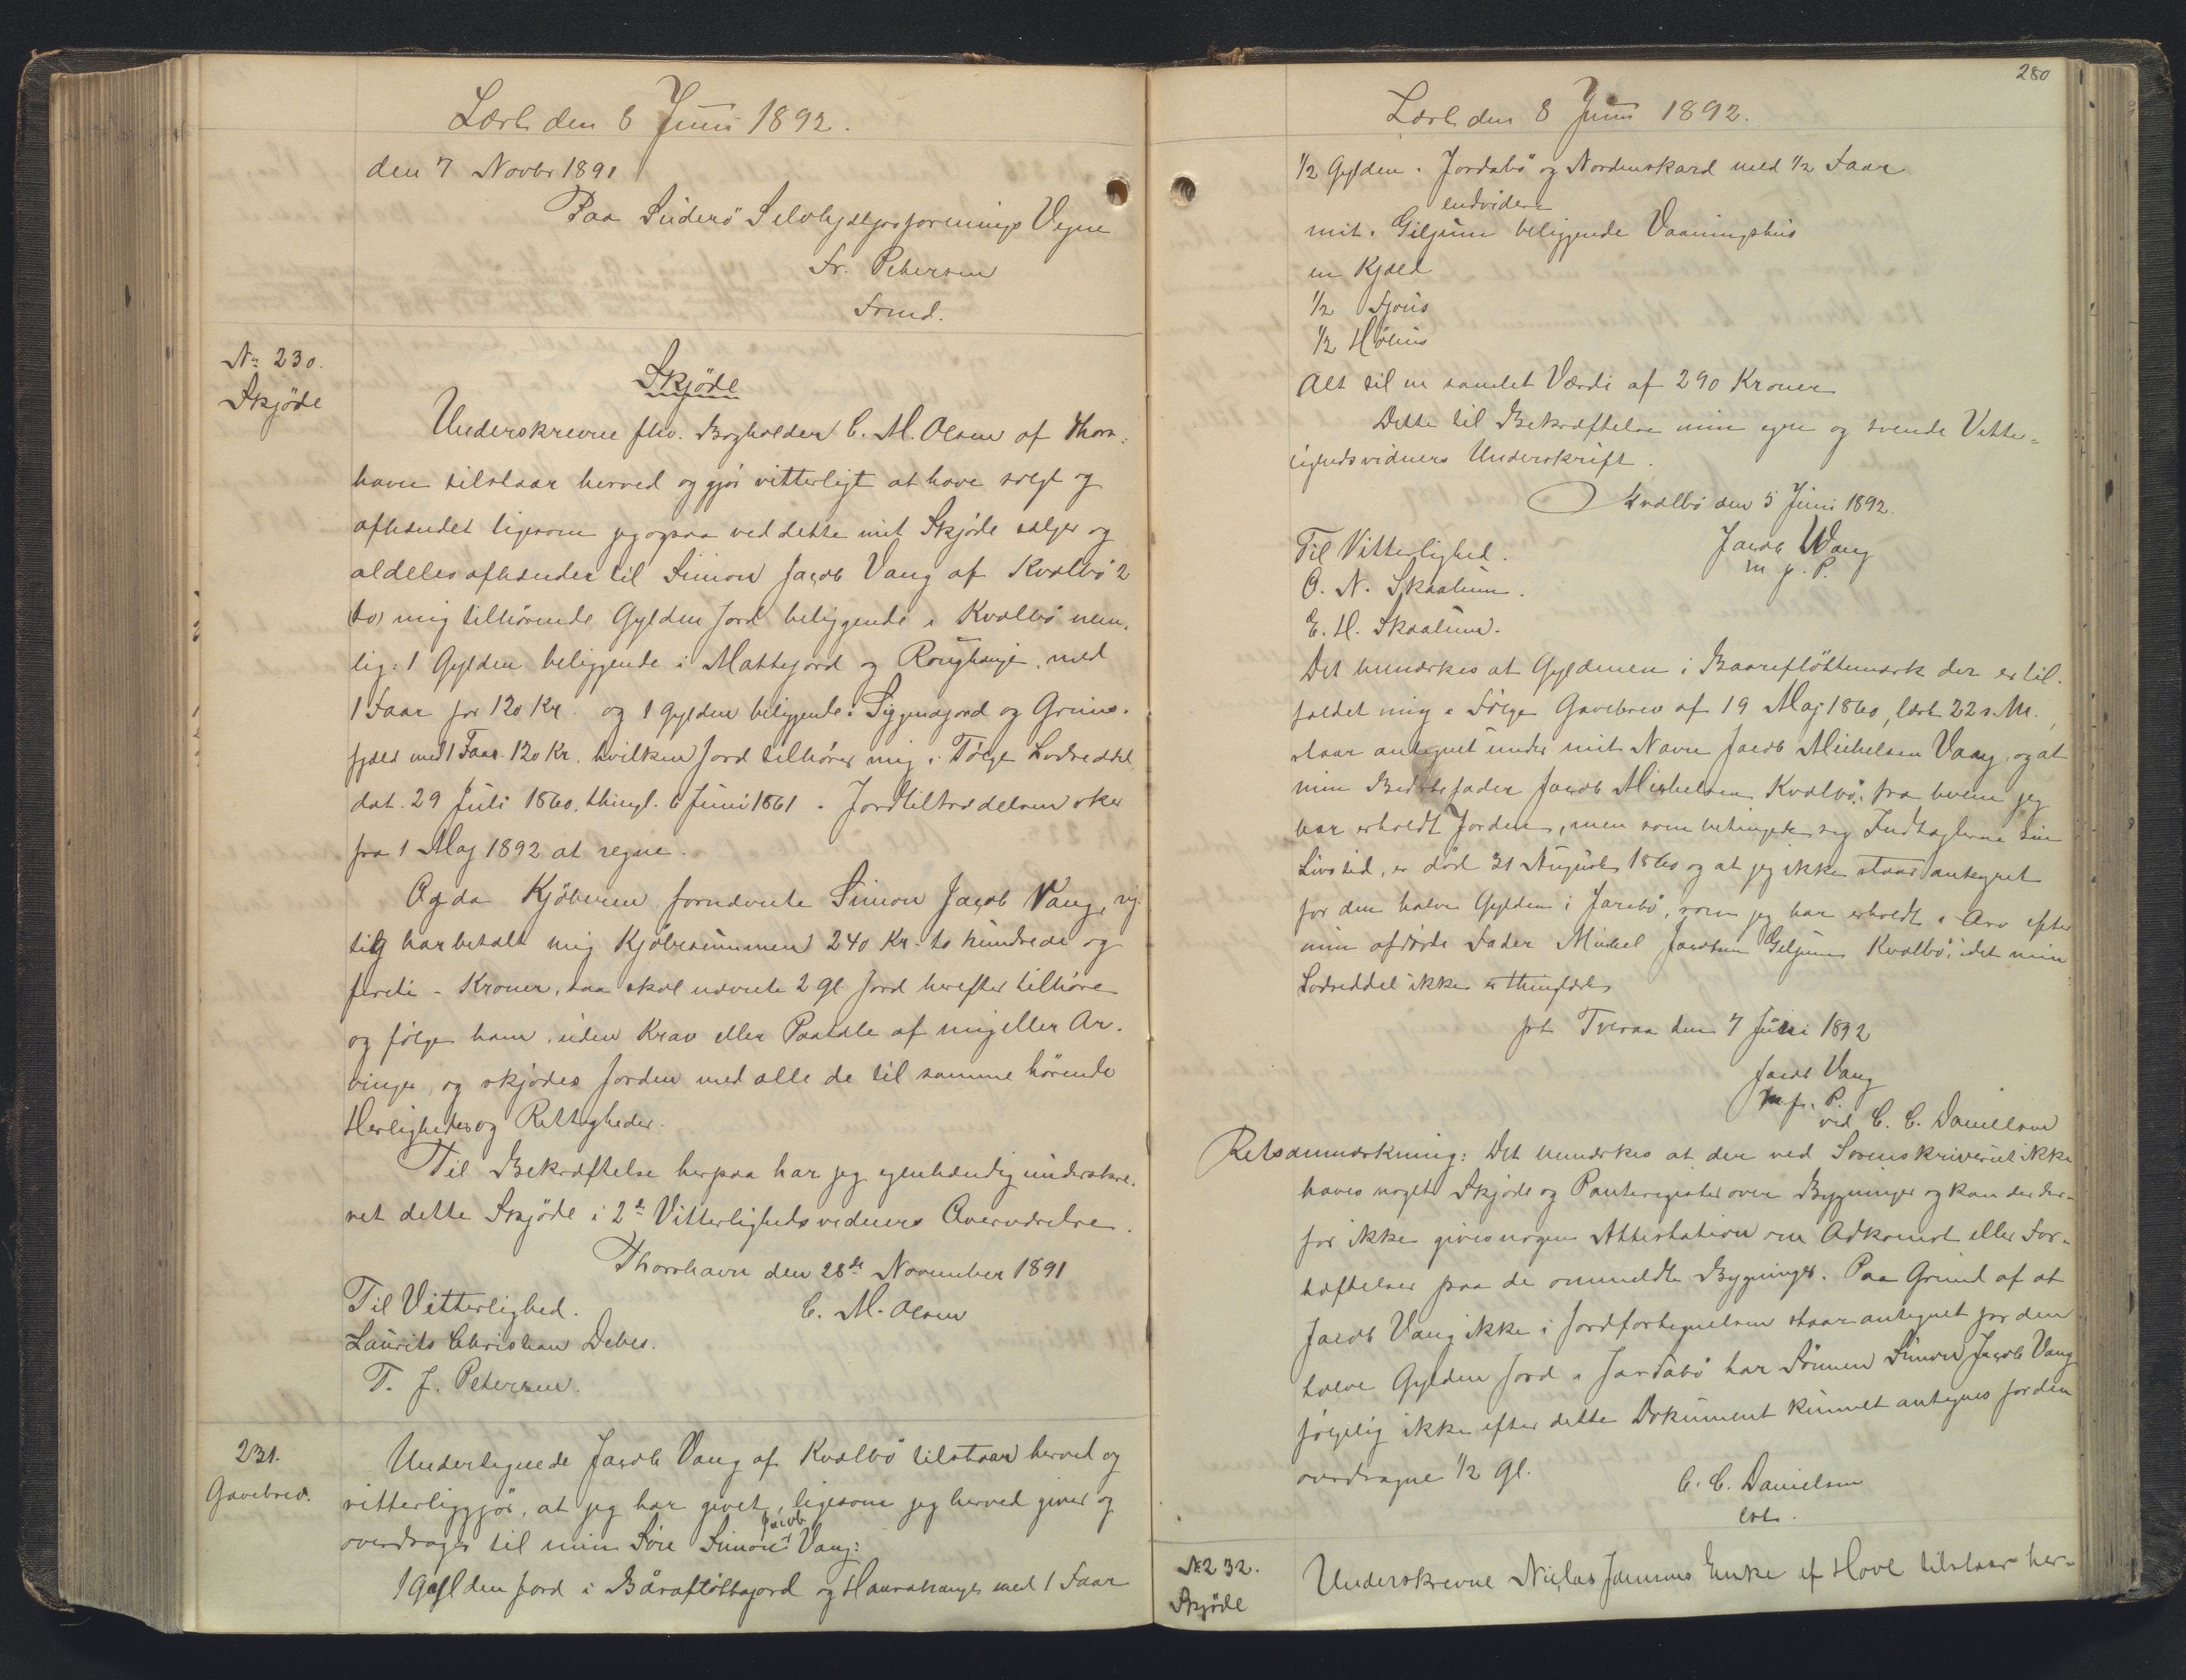 Læst den 8 Juni 1892.
den 7 Novbr 1891
Paa Suderö Selvhjælpsforenings Vegne
Fr. Petersen
Fmd.
No 230.
Skjöde
Skjöde
Underskrevne fhv. Bogholder C. M. Olsen af Thors-
havn tilstaar herved og gjör vitterligt at have solgt og
afhændet ligesom jeg ogsaa ved dette mit Skjöde sælger og
aldeles afhænder til Simon Jacob Vang af Kvalbö 2
(to) mig tilhörende Gylden Jord beliggende i Kvalbö nem-
lig: 1 Gylden beliggende i Mattejord og med
1 Faar for 120 Kr. og 1 Gylden beliggende i og Grims-
fjæld med 1 Faar 120 Kr. hvilken Jord tilhörer mig i Fölge Lodseddel
dat. 29 Juli 1860, thingl. 6 Juni 1861. Jordtiltrædelsen sker
fra 1 Maj 1892 at regne.
Og da Kjöberen fornævnte Simon Jacob Vang, rig-
tig har betalt mig Kjöbesummen 240 Kr. to hundrede og
fireti - Kroner, saa skal nævnte 2 Gl. Jord herefter tilhöre
og fölge ham, uden Krav eller Paatale af mig eller Ar-
vinger, og skjödes Jorden med alle de til samme hörende
Herligheder og Rettigheder.
Til Bekræftelse herpaa har jeg egenhændig underskre-
vet dette Skjöde i 2de Vitterlighedsvidners Overværelse.
Thorshavn den 28de November 1891
Til Vitterlighed. C. M. Olsen
Laurits Christian Debes.
T. J. Petersen.
231.
Gavebrev.
Undertegnede Jacob Vang af Kvalbö tilstaar herved og
vitterliggjör, at jeg har givet, ligesom jeg herved giver og
overdrager til min Sön Simon Jacob Vang:
1 Gylden Jord i Båraflöttajord og med 1 Faar
280
Læst den 8 Juni 1892.
1/2 Gylden i Jordabö og Nordenskard med 1/2 Faar
endvidere
mit i Giljum beliggende Vaaningshus
en Kjæld
1/2 Fjous
1/2 Höhus
Alt til en samlet Værdi af 290 Kroner
Dette til Bekræftelse min egen og tvende Vitter-
lighedsvidners Underskrift.
Kvalbö den 5 Juni 1892.
Til Vitterlighed. Jacob Wang
m. f. P.
O. N. Skaalum.
E. H. Skaalum.
Det bemærkes at Gyldenen i Baareflöttemark der er til-
faldet mig i Fölge Gavebrev af 19 Maj 1860, læst 22 s. M.,
staar antegnet under mit Navn Jacob Michelsen Vang, og at
min Bedstefader Jacob Michelsen Kvalbö, fra hvem jeg
har erholdt Jorden, men som betingede sig Indtægterne sin
Livstid, er död 31 August 1860 og at jeg ikke staar antegnet
for den halve Gylden i Jarebö, som jeg har erholdt i Arv efter
min afdöde Fader Michel Jacobsen Giljum Kvalbö, idet min
Lodseddel ikke er thinglæst
pt Tveraa den 7 Juni 1892
Jacob Vang
m. f. P.
ved C. C. Danielsen
Retsanmærkning: Det bemærkes at der ved Sorenskriveriet ikke
haves noget Skjöde og Panteregister over Bygninger og kan der der-
for ikke gives nogen Attestation om Adkomst eller For-
hæftelser paa de ommeldte Bygninger. Paa Grund af at
Jacob Vang ikke i Jordfortegnelsen staar antegnet for den
halve Gylden Jord i Jardabö har Sönnen Simon Jacob Vang
fölgelig ikke efter dette Dokument kunnet antegnes for den
overdragne 1/2 Gl.
C. C. Danielsen
cst.
No 232.
Skjöde
Underskrevne Niclas Joensens Enke af Hove tilstaar her-